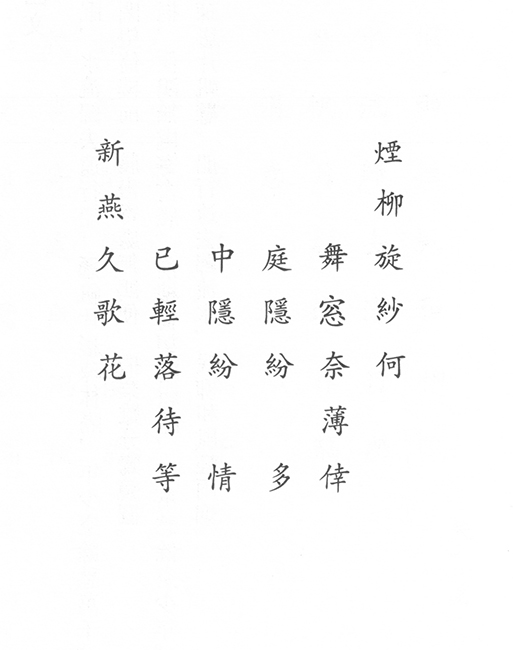 煙柳旋紗何
舞窓奈薄倖
庭隱紛多
中隱紛情
已輕落待等
新燕久歌花